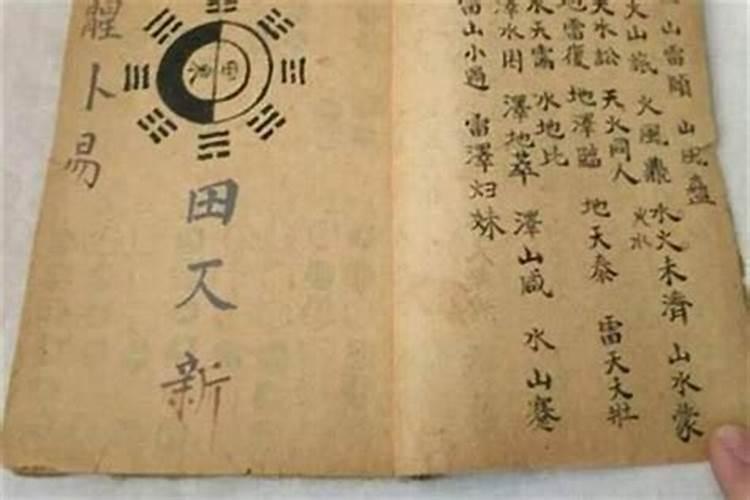 山雷頤 山風蠱
火山旅 火風鼎 水火未濟 山水蒙
火水
天水訟 天火同人
地雷復 地澤臨 地天泰 雷天大壯
水天需 水地比
澤水困 澤地萃 澤山咸 水山蹇
雷山小過 雷澤归妹
卜易
田又新